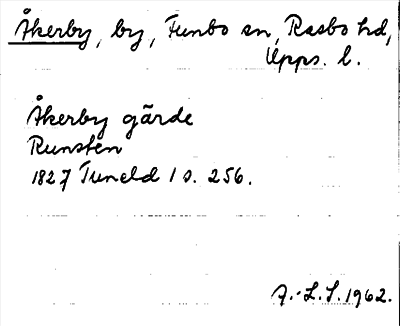 Åkerby, by, Funbo sn, Rasbo hd,
Upps. l.
Åkerby gärde
Runsten
1827 Tuneld 1 s. 256.
A.-L.S. 1962.